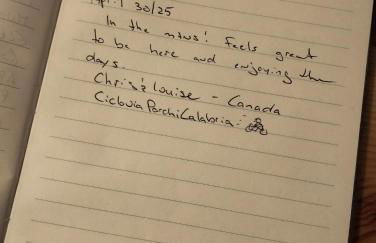 April 30/25
In the mtns! Feels great
to be here and enjoying the
days.
Chris & Louise - Canada
Ciclovia Parchi Calabria :